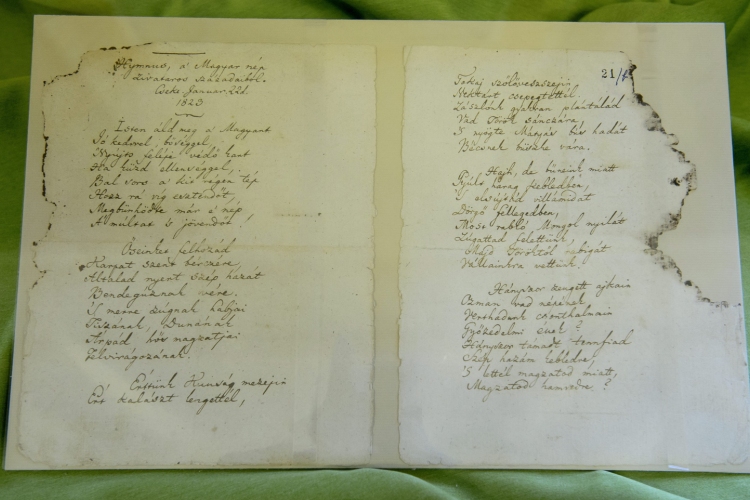 Hymnus, a' Magyar nép
zivataros századaiból.
Cseke. Január. 22d.
1823
Isten áldd meg a' Magyart
Jó kedvvel, bőséggel,
Nyújts feléje védő kart
Ha küzd ellenséggel,
Bal sors a' kit régen tép
Hozz rá víg esztendőt,
Megbűnhődte már e' nép
A' múltat 's jövendőt!
Őseinket felhozád
Kárpát szent bérczére,
Általad nyert szép hazát
Bendegúznak vére.
'S merre zúgnak habjai
Tiszának, Dunának
Árpád hős magzatjai
Felvirágozának.
Értünk Kunság mezején
Ért kalászt lengettél,
21/
Tokaj szőlővesszején
Nektárt csepegtettél.
Zászlónk gyakran plántálád
Vad Török sánczára,
'S nyögte Mátyás bús hadát
Bécsnek büszke vára.
Hajh, de bűneink miatt
Gyúlt harag kebledben,
'S elsújtád villámidat
Dörgő fellegedben,
Most rabló Mongol nyilát
Zúgattad felettünk,
Majd Töröktől rabigát
Vállainkra vettünk.
Hányszor zengett ajkain
Ozman vad népének
Vert hadunk csonthalmain
Győzedelmi ének?
Hányszor támadt tennfiad
Szép hazám kebledre,
'S lettél magzatod miatt,
Magzatod hamvvedre?